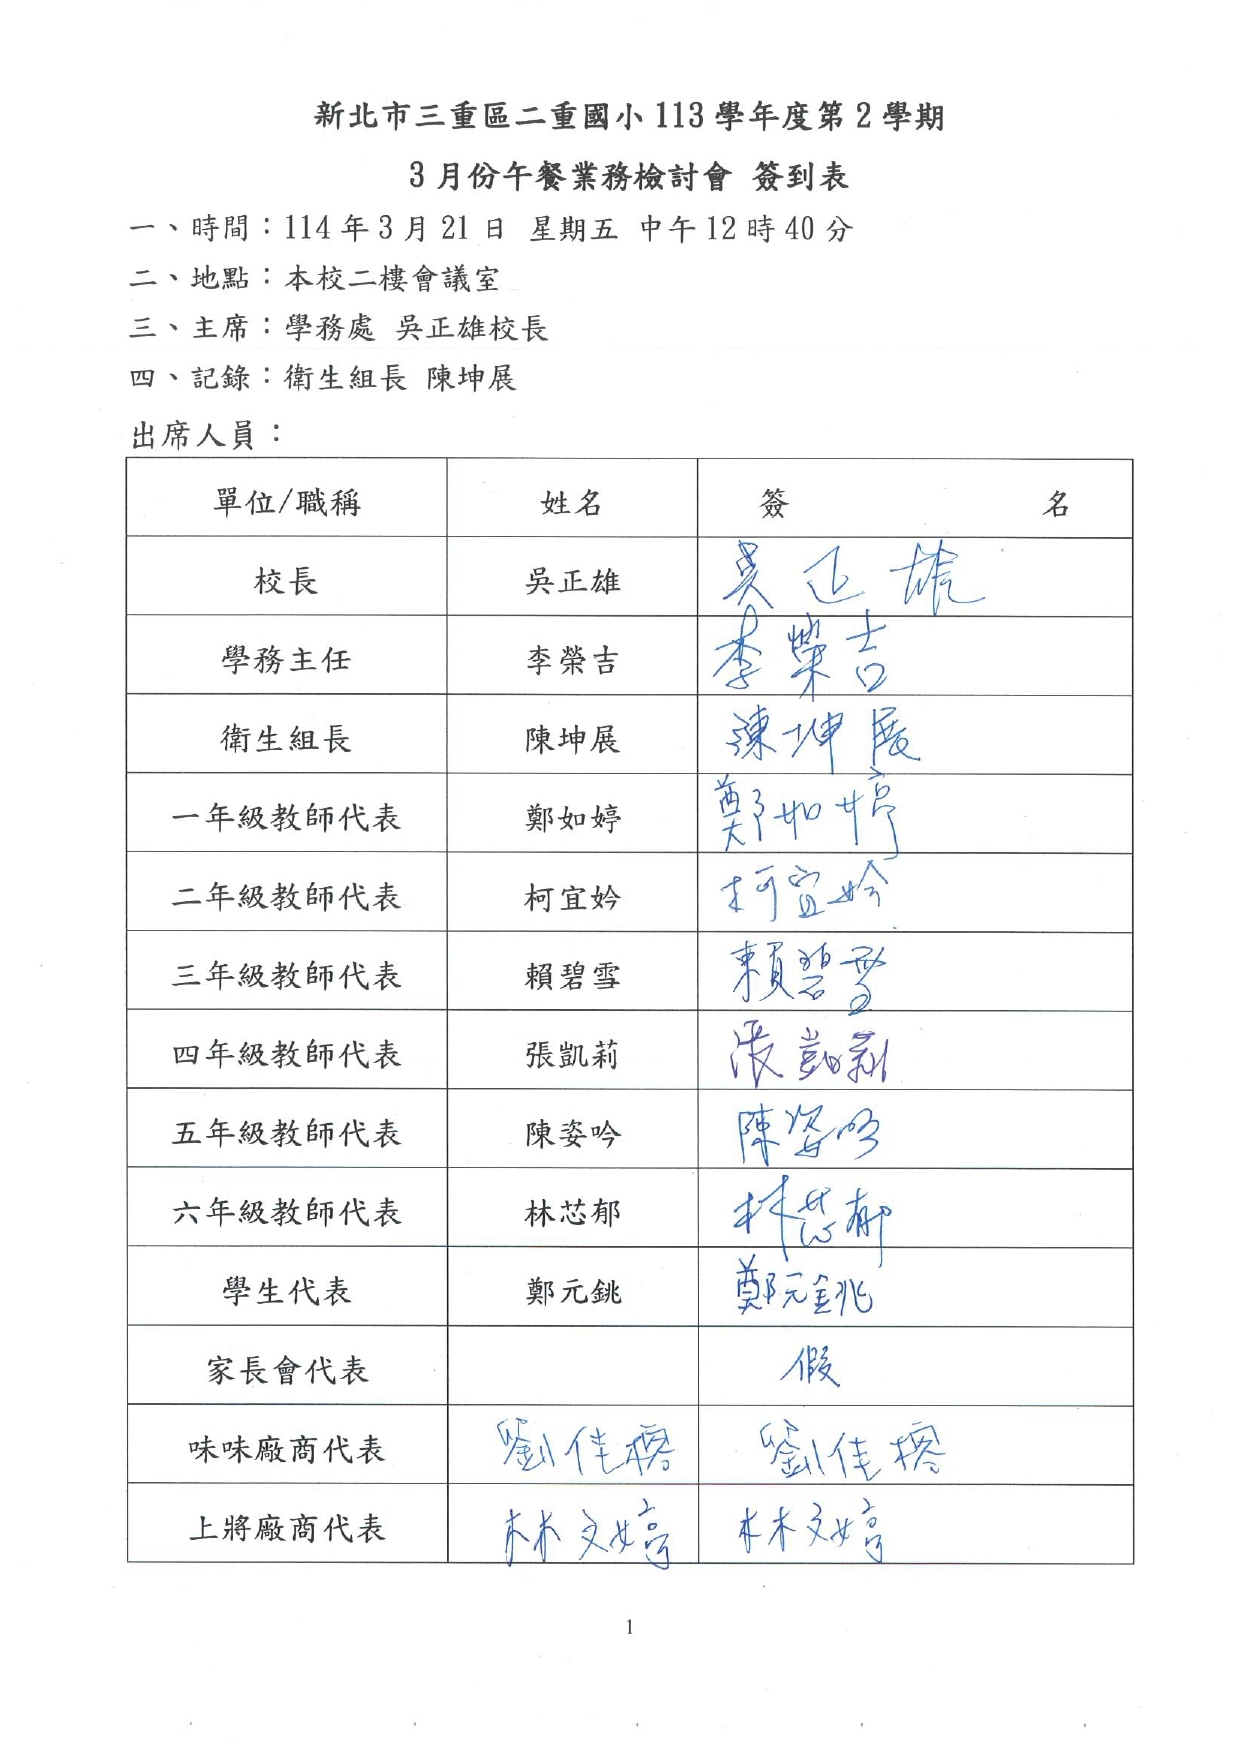 新北市三重區二重國小113學年度第2學期
3月份午餐業務檢討會 簽到表
一、時間：114年3月21日 星期五 中午12時40分
二、地點：本校二樓會議室
三、主席：學務處 吳正雄校長
四、記錄：衛生組長 陳坤展
出席人員：
單位/職稱 姓名 簽 名
校長 吳正雄 吳正雄
學務主任 李榮吉 李榮吉
衛生組長 陳坤展 陳坤展
一年級教師代表 鄭如婷 鄭如婷
二年級教師代表 柯宜妗 柯宜妗
三年級教師代表 賴碧雪 賴碧雪
四年級教師代表 張凱莉 張凱莉
五年級教師代表 陳姿吟 陳姿吟
六年級教師代表 林芯郁 林芯郁
學生代表 鄭元銚 鄭元銚
家長會代表 假
味味廠商代表 劉佳 劉佳
上將廠商代表 林文婷 林文婷
1